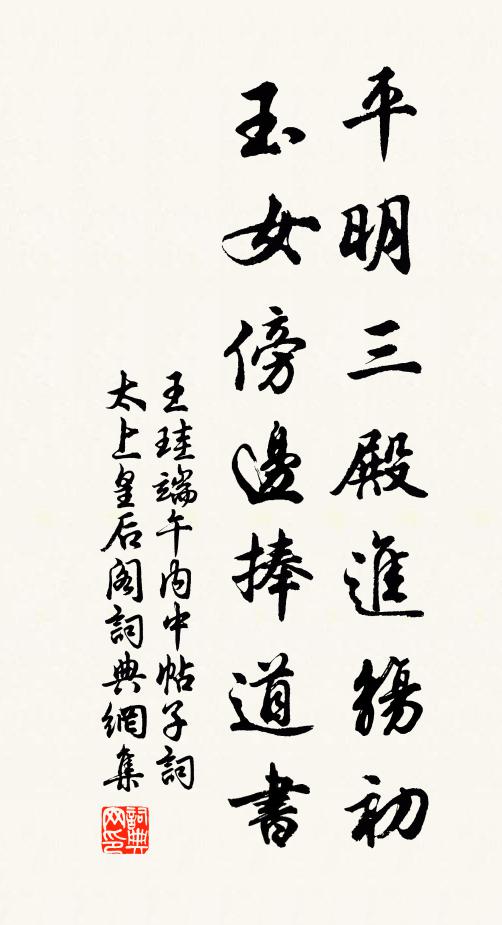 平明三殿進觴初
玉女傍邊捧道書
王珪端午內中帖子詞
太上皇后閣詞典網集
詞典網印